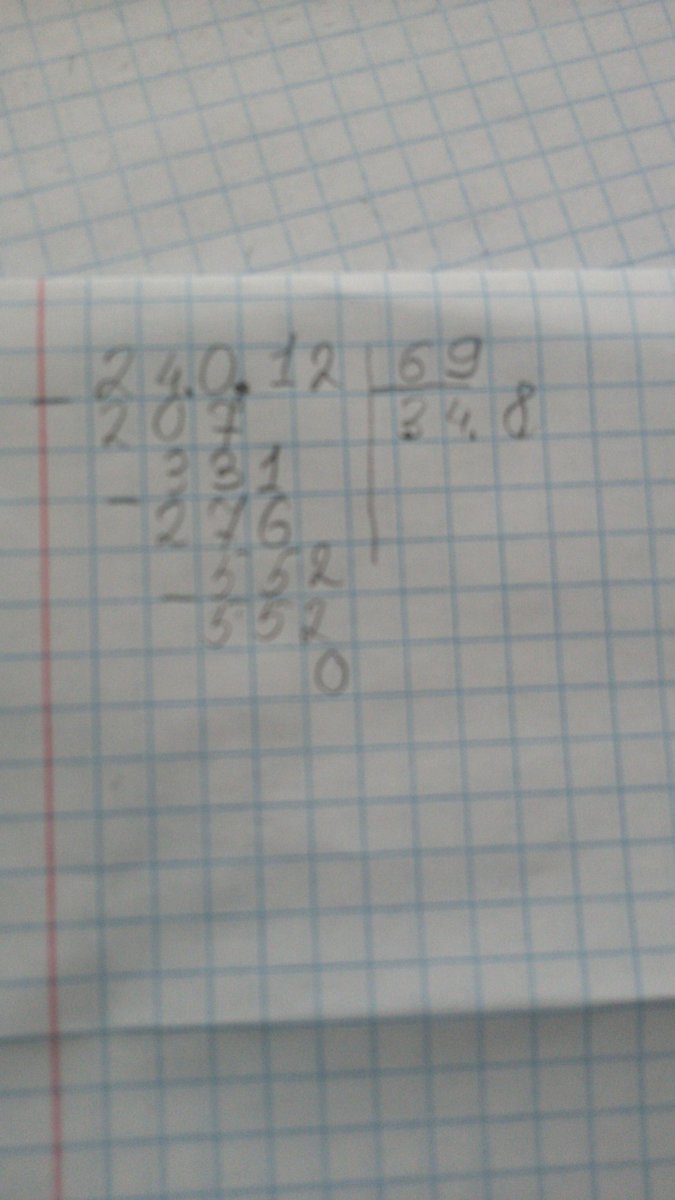 24.0.12 69
- 207 34.8
331
- 276
552
- 552
0